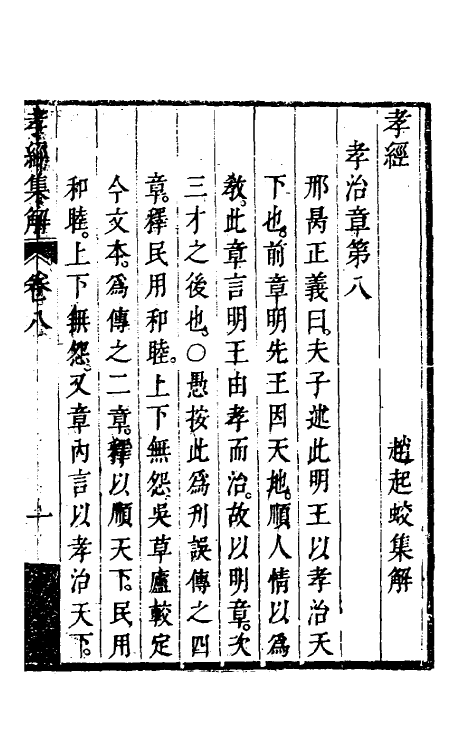 孝經　趙起蛟集解
孝治章第八
邢昺正義曰。夫子述此明王以孝治天
下也。前章明先王因天地。順人情以為
教。此章言明王由孝而治。故以明章。次
三才之後也。○愚按此為刋誤傳之四
章。釋民用和睦。上下無怨。吳草廬較定
今文本。為傳之二章。釋以順天下。民用
和睦。上下無怨。又章內言以孝治天下。
孝經集解　卷八　一